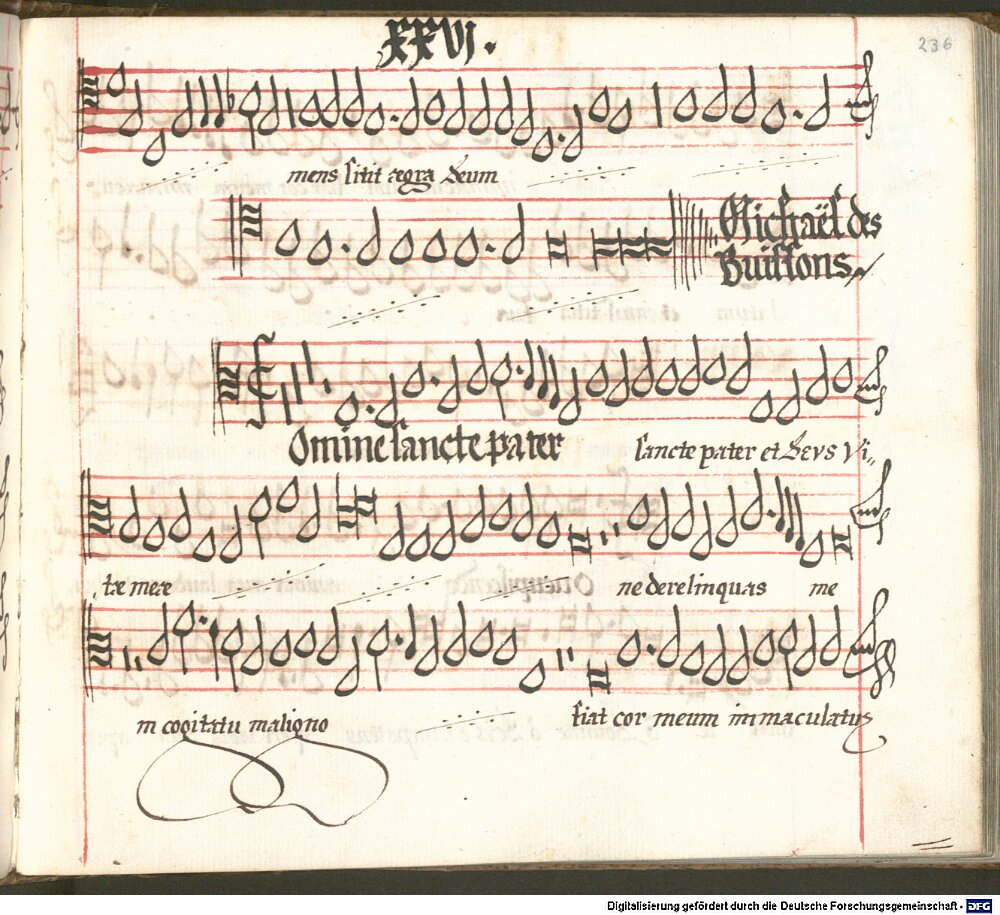 XXVI.
236
mens sitit ægra Deum
Michaël des
Buissons
Omine sancte pater sancte pater et Deus Vi-
tæ meæ ne derelinquas me
in cogitatu maligno fiat cor meum immaculatus
Digitalisierung gefördert durch die Deutsche Forschungsgemeinschaft - DFG